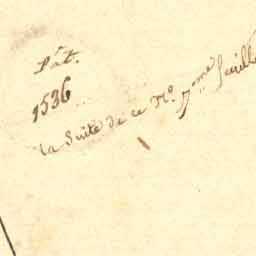 Pat.
1536
la Suite de ce No. 7me feuille